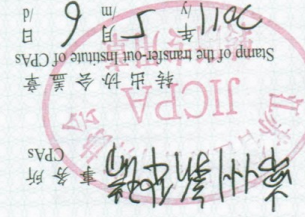 常州 事务所
CPAs
江苏 协会
JICPA
转出协会盖章
Stamp of the transfer-out Institute of CPAs
2011年 5月 6日
/y /m /d